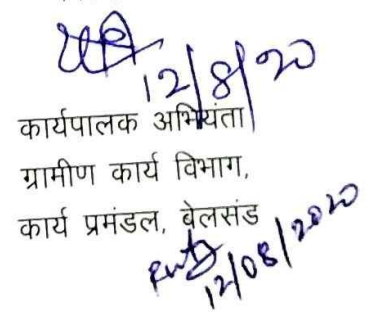 12/8/20
कार्यपालक अभियंता
ग्रामीण कार्य विभाग,
कार्य प्रमंडल, बेलसंड
12/08/2020